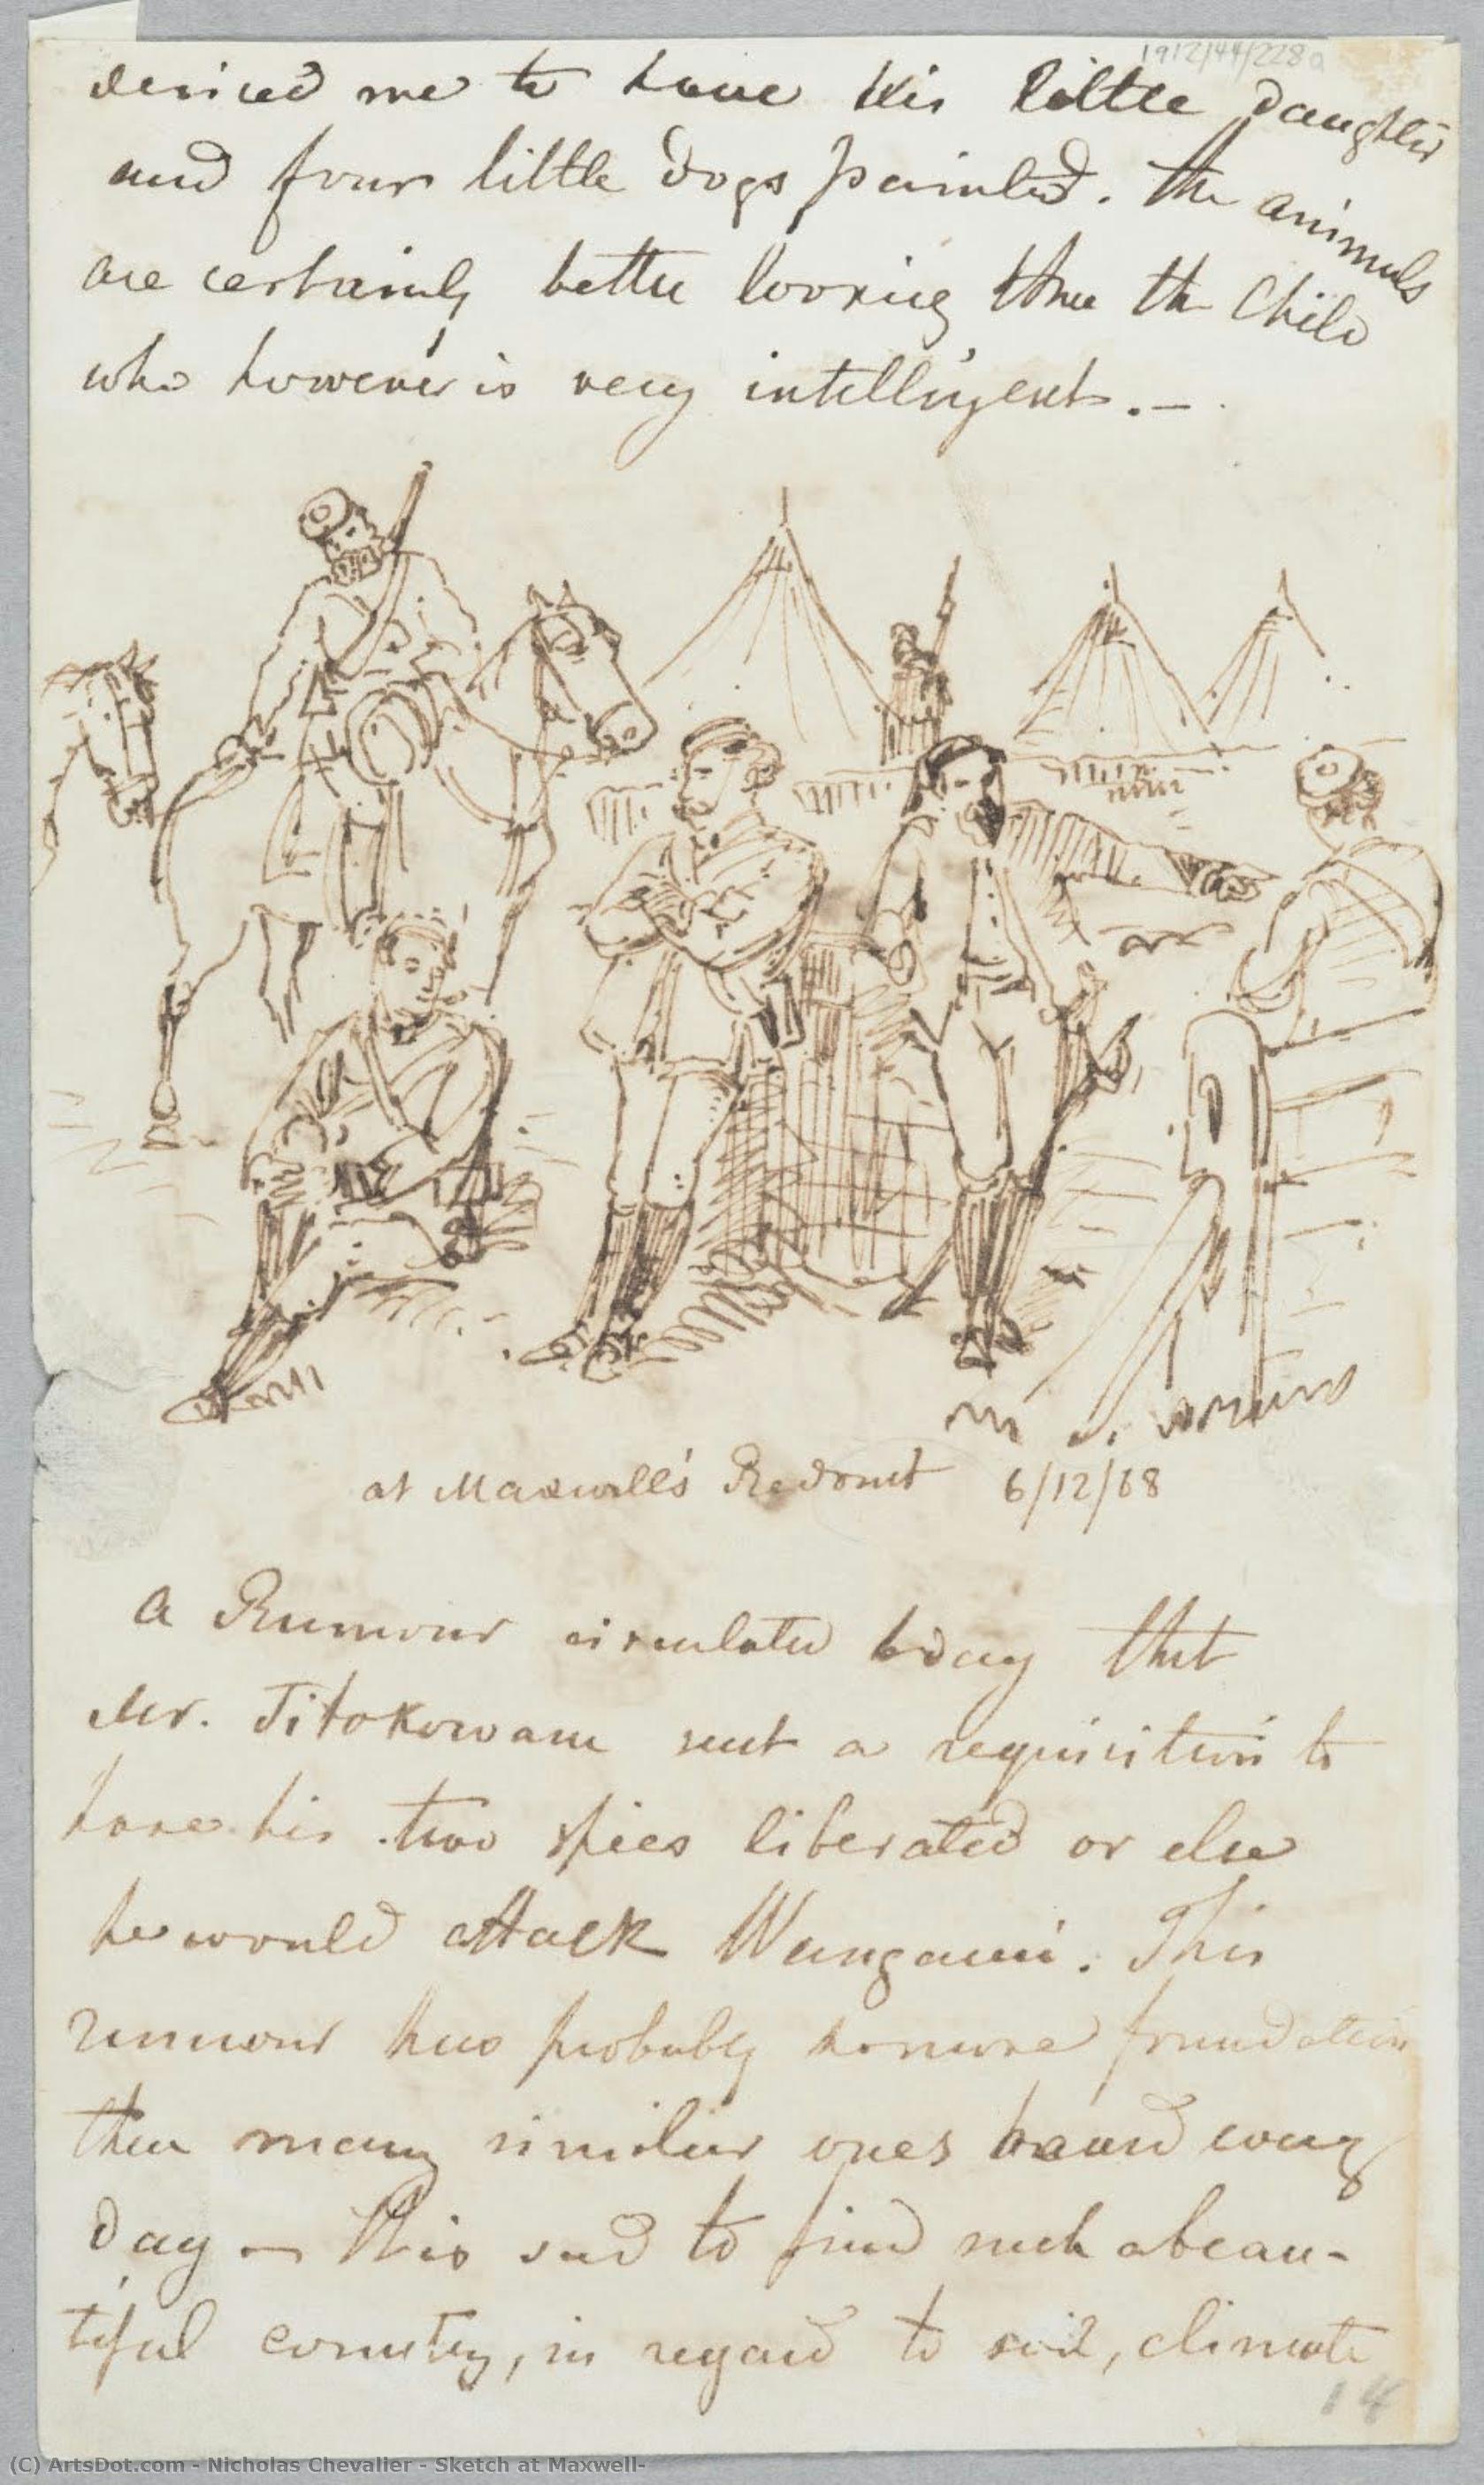 1912/44/228a
desired me to have his little daughter
and four little dogs painted. The animals
are certainly better looking than the Child
who however is very intelligent. —
at Maxwell's Redout 6/12/68
A Rumour circulated today that
Mr. Titokowaru sent a requisition to
have his two spies liberated or else
he would attack Wanganui. This
rumour has probably no more foundation
than many similar ones heard every
day — this sad to find such a beau-
tiful country, in regard to soil, climate
14
(C) ArtsDot.com - Nicholas Chevalier - Sketch at Maxwell-